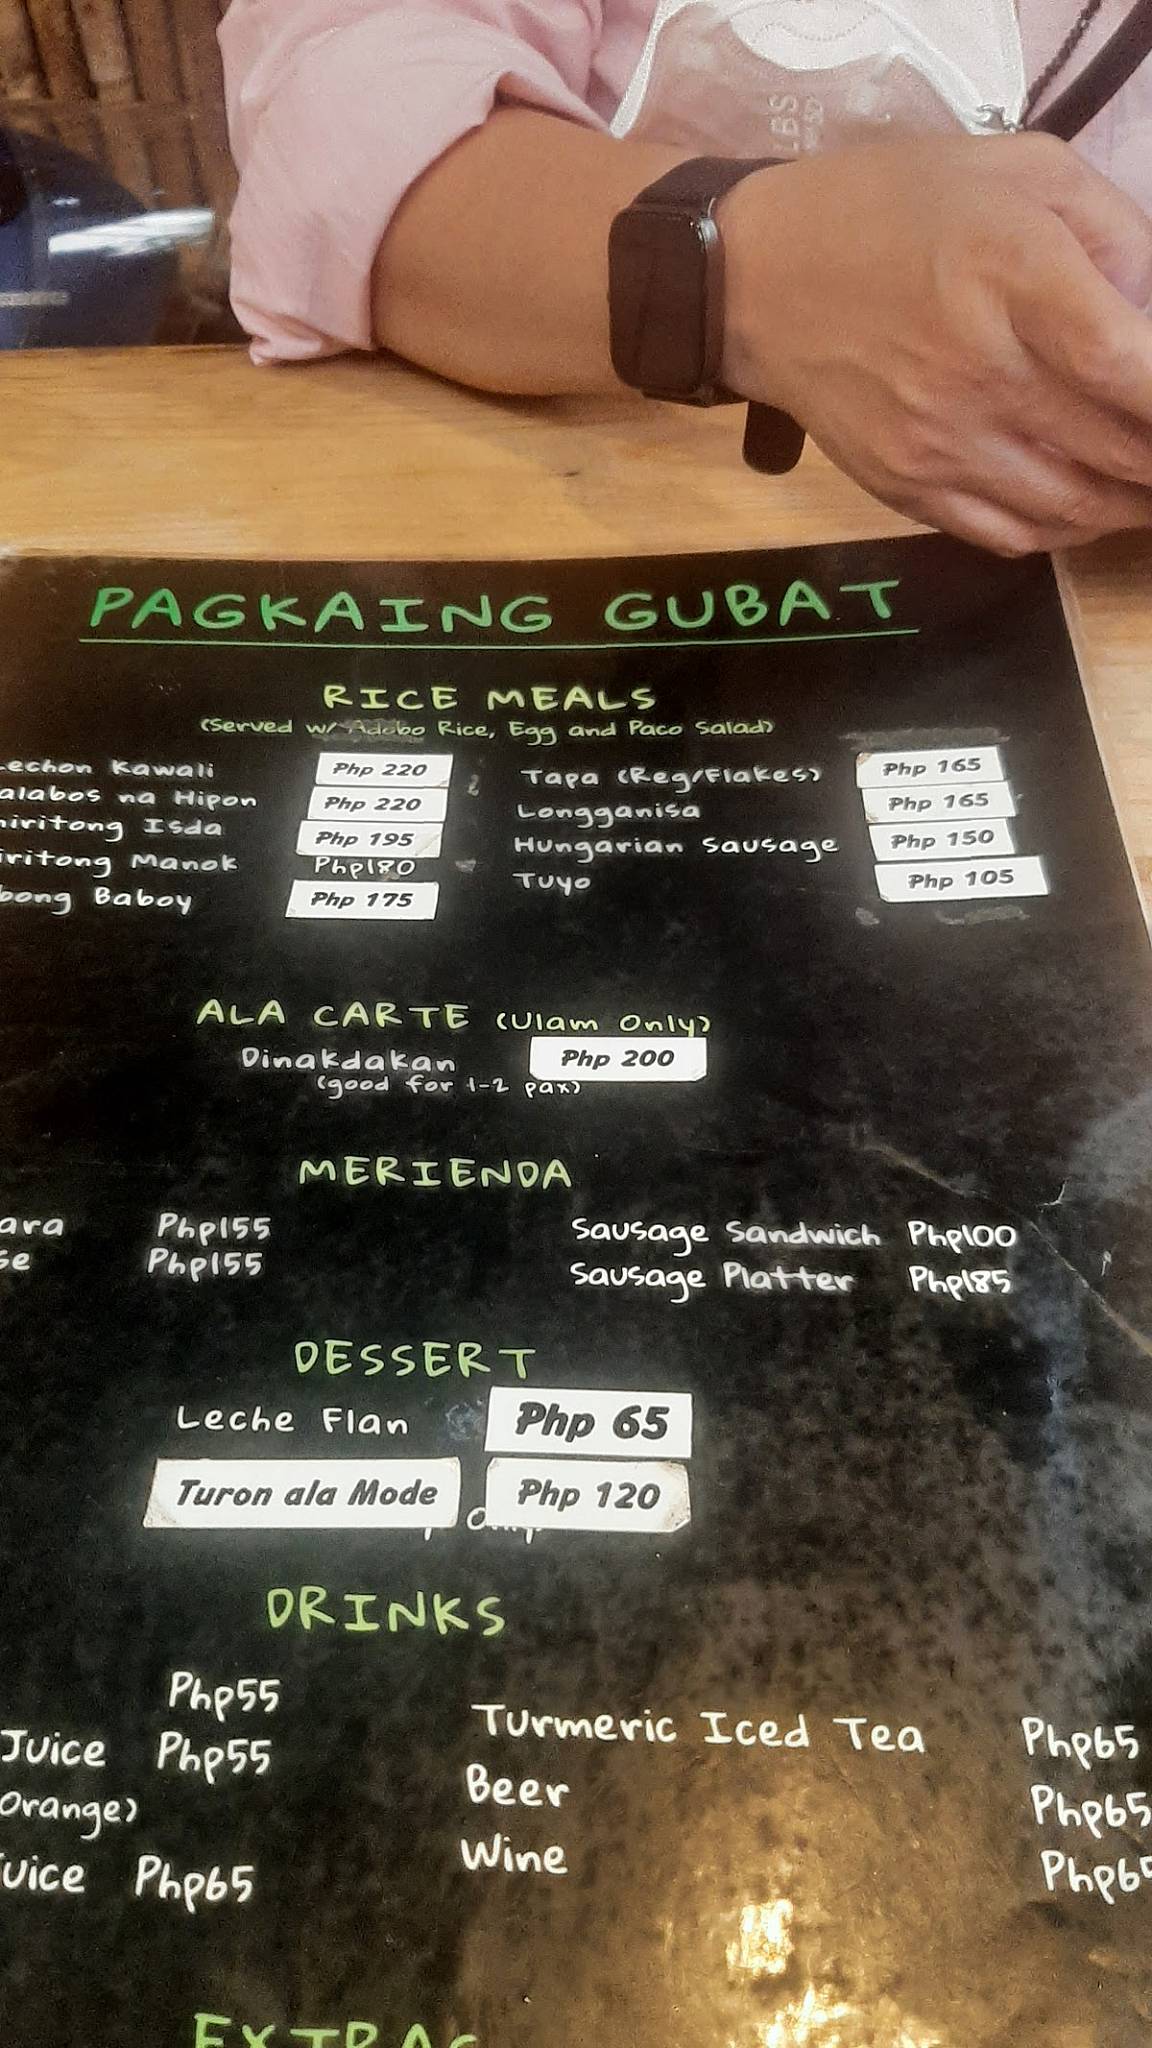 PAGKAING GUBAT
RICE MEALS
(Served w/ Adobo Rice, Egg and Paco Salad)
echon Kawali Php 220
alabos na Hipon Php 220
iritong Isda Php 195
iritong Manok Php180
bong Baboy Php 175
Tapa (Reg/Flakes) Php 165
Longganisa Php 165
Hungarian Sausage Php 150
Tuyo Php 105
ALA CARTE (Ulam Only)
Dinakdakan Php 200
(good for 1-2 pax)
MERIENDA
ara Php155
se Php155
Sausage Sandwich Php100
Sausage Platter Php185
DESSERT
Leche Flan Php 65
Turon ala Mode Php 120
DRINKS
Php55
Juice Php55
Orange)
uice Php65
Turmeric Iced Tea Php65
Beer Php65
Wine Php6
EXTRAS